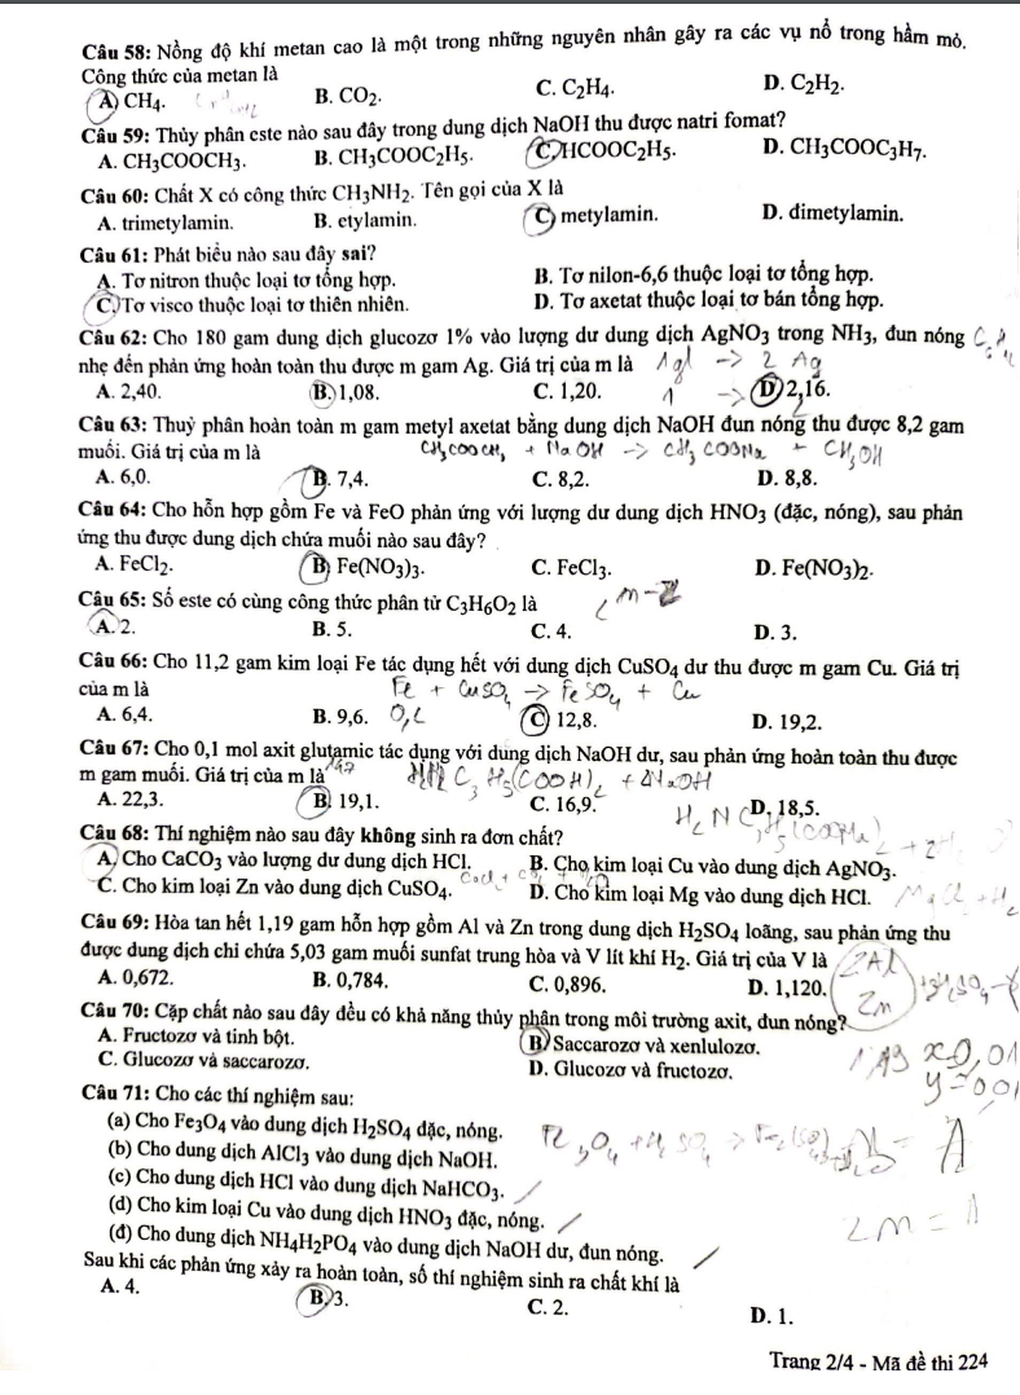 Câu 58: Nồng độ khí metan cao là một trong những nguyên nhân gây ra các vụ nổ trong hầm mỏ.
Công thức của metan là
A. CH4. B. CO2. C. C2H4. D. C2H2.
Câu 59: Thủy phân este nào sau đây trong dung dịch NaOH thu được natri fomat?
A. CH3COOCH3. B. CH3COOC2H5. C. HCOOC2H5. D. CH3COOC3H7.
Câu 60: Chất X có công thức CH3NH2. Tên gọi của X là
A. trimetylamin. B. etylamin. C. metylamin. D. đimetylamin.
Câu 61: Phát biểu nào sau đây sai?
A. Tơ nitron thuộc loại tơ tổng hợp. B. Tơ nilon-6,6 thuộc loại tơ tổng hợp.
C. Tơ visco thuộc loại tơ thiên nhiên. D. Tơ axetat thuộc loại tơ bán tổng hợp.
Câu 62: Cho 180 gam dung dịch glucozơ 1% vào lượng dư dung dịch AgNO3 trong NH3, đun nóng
nhẹ đến phản ứng hoàn toàn thu được m gam Ag. Giá trị của m là 1 gl -> 2 Ag
A. 2,40. B. 1,08. C. 1,20. 1 -> D. 2,16.
2
Câu 63: Thuỷ phân hoàn toàn m gam metyl axetat bằng dung dịch NaOH đun nóng thu được 8,2 gam
muối. Giá trị của m là CH3COOCH3 + NaOH -> CH3COONa + CH3OH
A. 6,0. B. 7,4. C. 8,2. D. 8,8.
Câu 64: Cho hỗn hợp gồm Fe và FeO phản ứng với lượng dư dung dịch HNO3 (đặc, nóng), sau phản
ứng thu được dung dịch chứa muối nào sau đây?
A. FeCl2. B. Fe(NO3)3. C. FeCl3. D. Fe(NO3)2.
Câu 65: Số este có cùng công thức phân tử C3H6O2 là 2^n-2
A. 2. B. 5. C. 4. D. 3.
Câu 66: Cho 11,2 gam kim loại Fe tác dụng hết với dung dịch CuSO4 dư thu được m gam Cu. Giá trị
của m là Fe + CuSO4 -> FeSO4 + Cu
A. 6,4. B. 9,6. 0,2 C. 12,8. D. 19,2.
Câu 67: Cho 0,1 mol axit glutamic tác dụng với dung dịch NaOH dư, sau phản ứng hoàn toàn thu được
m gam muối. Giá trị của m là 147 C3H5(COOH)2 + 2NaOH
A. 22,3. B. 19,1. C. 16,9. D. 18,5.
H2NC3H5(COONa)2 + 2H2O
Câu 68: Thí nghiệm nào sau đây không sinh ra đơn chất?
A. Cho CaCO3 vào lượng dư dung dịch HCl. B. Cho kim loại Cu vào dung dịch AgNO3.
C. Cho kim loại Zn vào dung dịch CuSO4. D. Cho kim loại Mg vào dung dịch HCl. MgCl2 + H2
Câu 69: Hòa tan hết 1,19 gam hỗn hợp gồm Al và Zn trong dung dịch H2SO4 loãng, sau phản ứng thu
được dung dịch chỉ chứa 5,03 gam muối sunfat trung hòa và V lít khí H2. Giá trị của V là 2Al
A. 0,672. B. 0,784. C. 0,896. D. 1,120. Zn
Câu 70: Cặp chất nào sau đây đều có khả năng thủy phân trong môi trường axit, đun nóng?
A. Fructozơ và tinh bột. B. Saccarozơ và xenlulozơ.
C. Glucozơ và saccarozơ. D. Glucozơ và fructozơ.
1,19 x=0,01
y=0,01
Câu 71: Cho các thí nghiệm sau:
(a) Cho Fe3O4 vào dung dịch H2SO4 đặc, nóng.
(b) Cho dung dịch AlCl3 vào dung dịch NaOH.
(c) Cho dung dịch HCl vào dung dịch NaHCO3.
(d) Cho kim loại Cu vào dung dịch HNO3 đặc, nóng.
(đ) Cho dung dịch NH4H2PO4 vào dung dịch NaOH dư, đun nóng.
Sau khi các phản ứng xảy ra hoàn toàn, số thí nghiệm sinh ra chất khí là
A. 4. B. 3. C. 2. D. 1.
Trang 2/4 - Mã đề thi 224